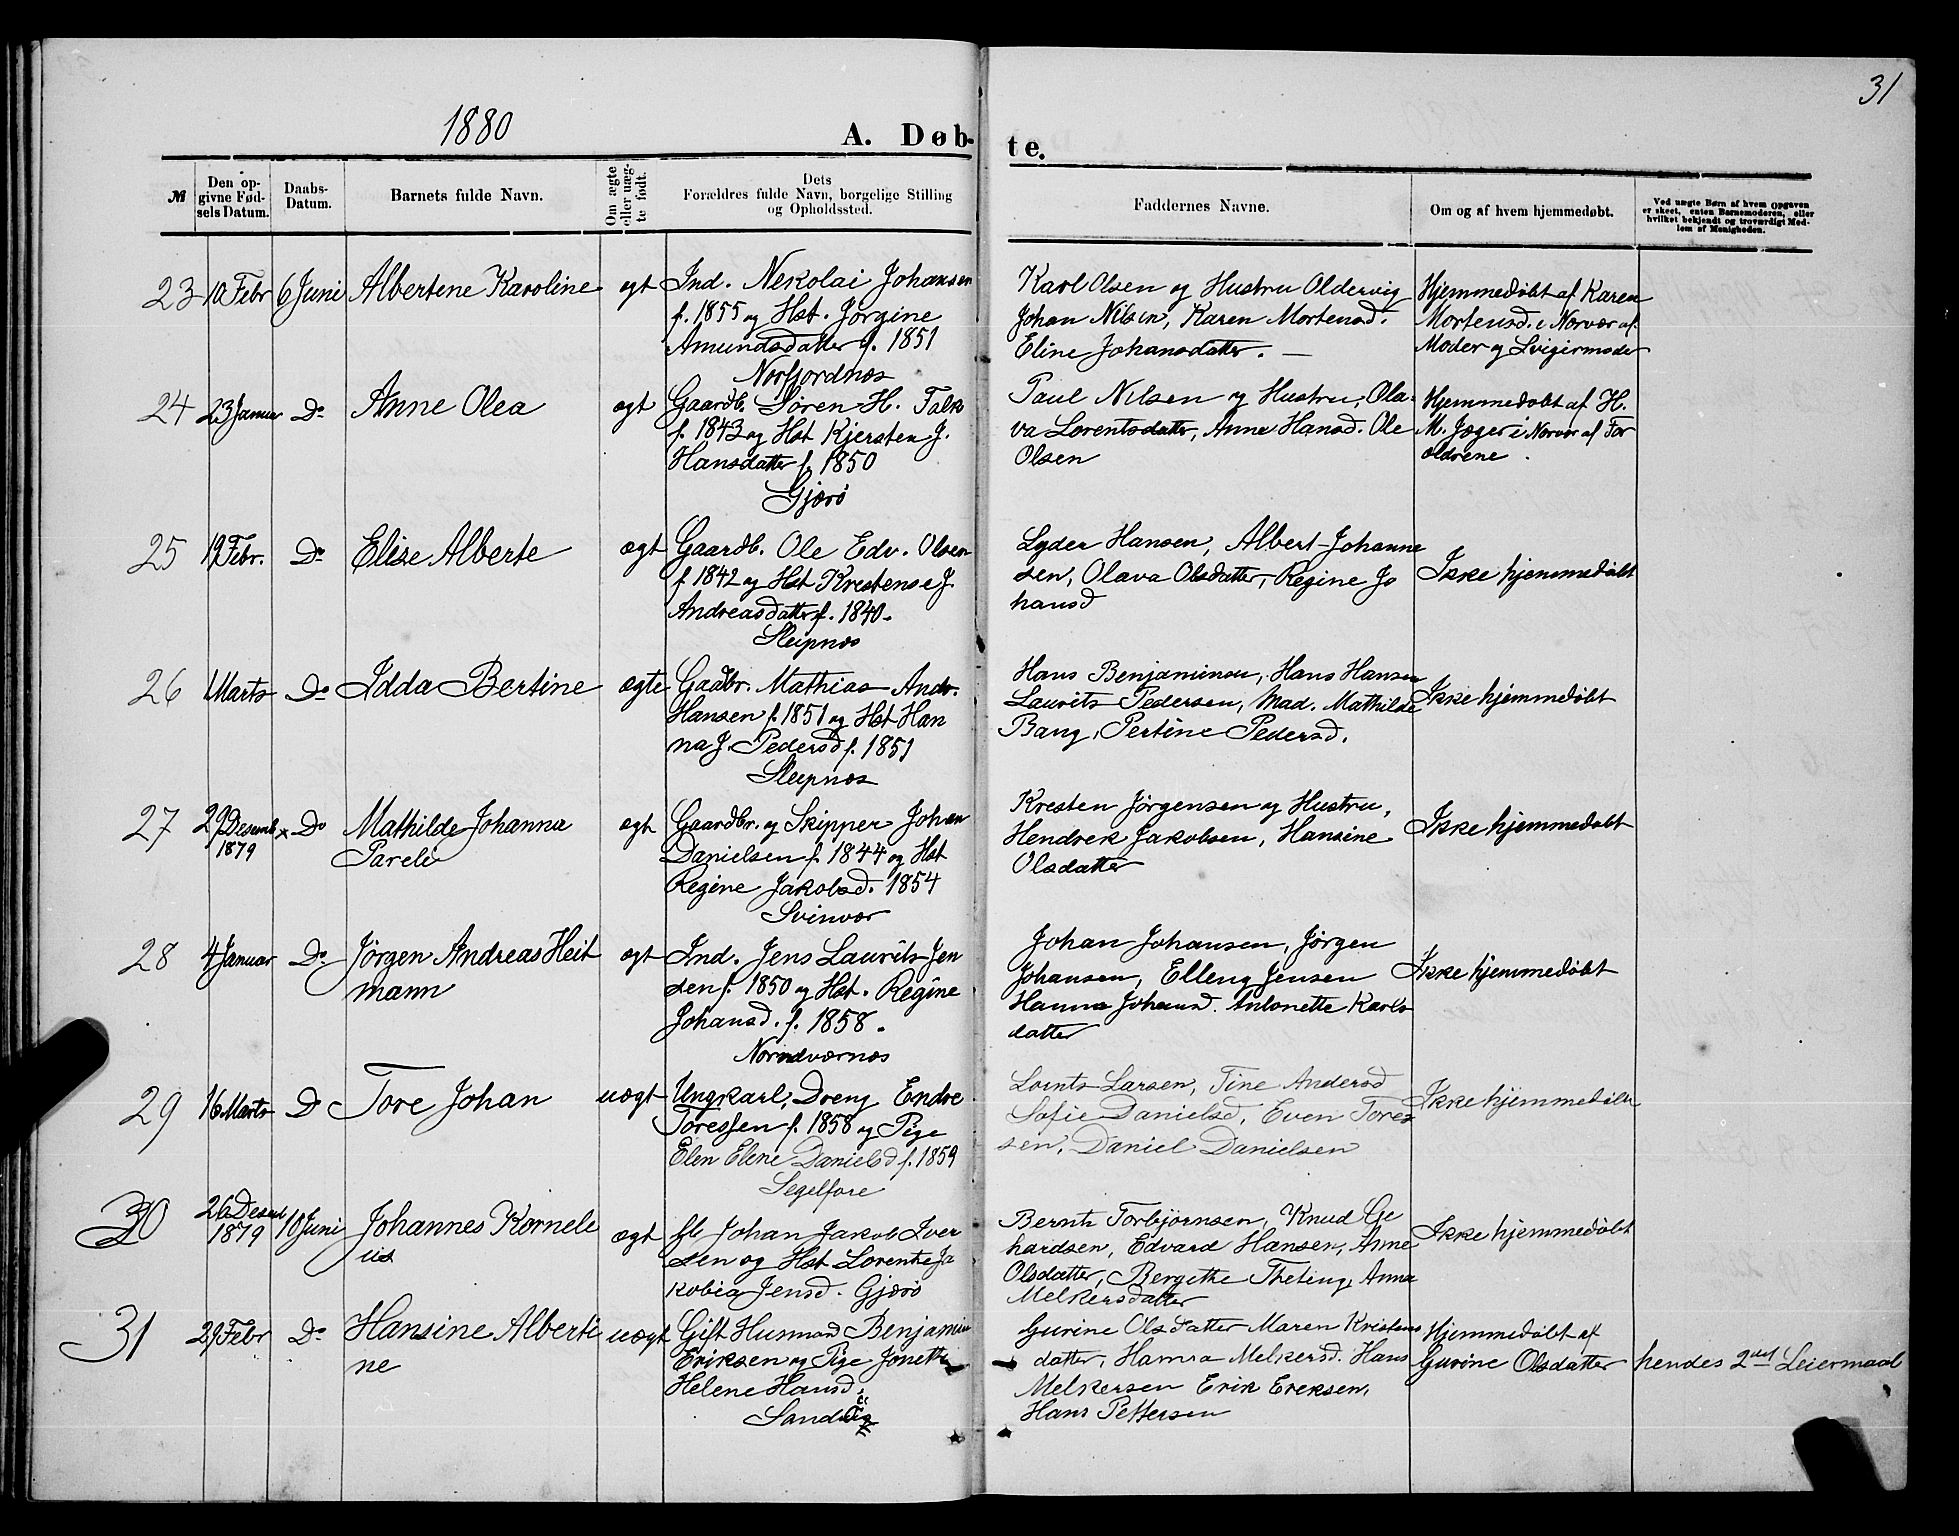 31
1880
A. Døb-
te.
№
Den op-
givne Fød-
sels Datum.
Daabs-
Datum.
Barnets fulde Navn.
Om ægte
eller uæg-
te født.
Dets
Forældres fulde Navn, borgelige Stilling
og Opholdssted.
Faddernes Navne.
Om og af hvem hjemmedøbt.
Ved uægte Børn af hvem Opgaven
er skeet, enten Barnemoderen, eller
hvilket bekjendt og troværdigt Med-
lem af Menigheden.
23
10 Febr
6 Juni
Albertene Karoline
egt
Ind. Nekolai Johansen
f. 1855 og Hst. Jørgine
Amundsdatter f. 1851
Norfjordnæs
Karl Olsen og Hustru Oldervig
Johan Nilsen, Karen Mortensd.
Eline Johansdatter. —
Hjemmedøbt af Karen
Mortensd. i Nærvær af
Moder og Svigermoder
24
23 Januar
Do
Anne Olea
ægt
Gaardb. Søren H. Falk
f. 1843 og Hst Kjersten J.
Hansdatter f. 1850
Gjærø
Paul Nilsen og Hustru, Ola-
va Lorentsdatter, Anne Hansd. Ole
Olsen
Hjemmedøbt af H.
M. Jæger i Nærvær af For
ældrene.
25
19 Febr.
Do
Elise Alberte
ægt
Gaardb. Ole Edv. Olsen
f 1842 og Hst Krestense J.
Andreasdatter f. 1840.
Sleipnæs
Lyder Hansen, Albert Johanne
sen, Olava Olsdatter, Regine Jo
hansd
Ikke hjemmedøbt
26
1 Marts
Do
Idda Bertine
ægte
Gaadbr. Mathias Andr.
Hansen f. 1851 og Hst Han
na J. Pedersd f. 1851
Sleipnæs
Hans Benjaminsen, Hans Hansen
Laurits Pedersen, Mad. Mathilde
Bang, Pertine Pedersd.
Ikke hjemmedøbt
27
29 Desemb
1879
x Do
Mathilde Johanna
Pareli
ægt
Gaardbr. og Skipper Johan
Danielsen f. 1844 og Hst
Regine Jakobsd. 1854
Svinvær
Kresten Jørgensen og Hustru,
Hendrek Jakobsen, Hansine
Olsdatter
Ikke hjemmedøbt
28
4 Januar
Do
Jørgen Andreas Heit
mann
egt
Ind. Jens Laurits Jen
sen f. 1850 og Hst. Regine
Johansd. f. 1858.
Nordværnæs
Johan Johansen, Jørgen
Johansen, Elleng Jensen
Hanna Johansd. Antonette Karls
datter
Ikke hjemmedøbt
29
16 Marts
Do
Tore Johan
uægt
Ungkarl, Dreng Endre
Toressen f. 1858 og Pige
Elen Elene Danielsd f. 1859
Segelfore
Lornts Larsen, Tine Andersd
Sofie Danielsd, Even Tores
sen, Daniel Danielsen
Ikke hjemmedøbt
30
26 Desemb
1879
10 Juni
Johannes Kornele
ius
ægt
Gb Johan Jakob Iver
sen og Hst Lorentze Ja
kobia Jensd. Gjærø
Bernth Torbjørnsen, Knud Ge
hardsen, Edvard Hansen, Anne
Olsdatter, Bergithe Theting, Anna
Melkersdatter
Ikke hjemmedøbt
31
29 Febr
Do
Hansine Alberti
ne
uægt
Gift Husmand Benjamin
Eriksen og Pige Jonette
Helene Hansd.
Gurine Olsdatter Maren Kristens
datter, Hanna Melkersd. Hans
Melkersen Erik Ereksen,
Hans Pettersen
Hjemmedøbt af
Gurine Olsdatter
hendes 2det Leiermaal